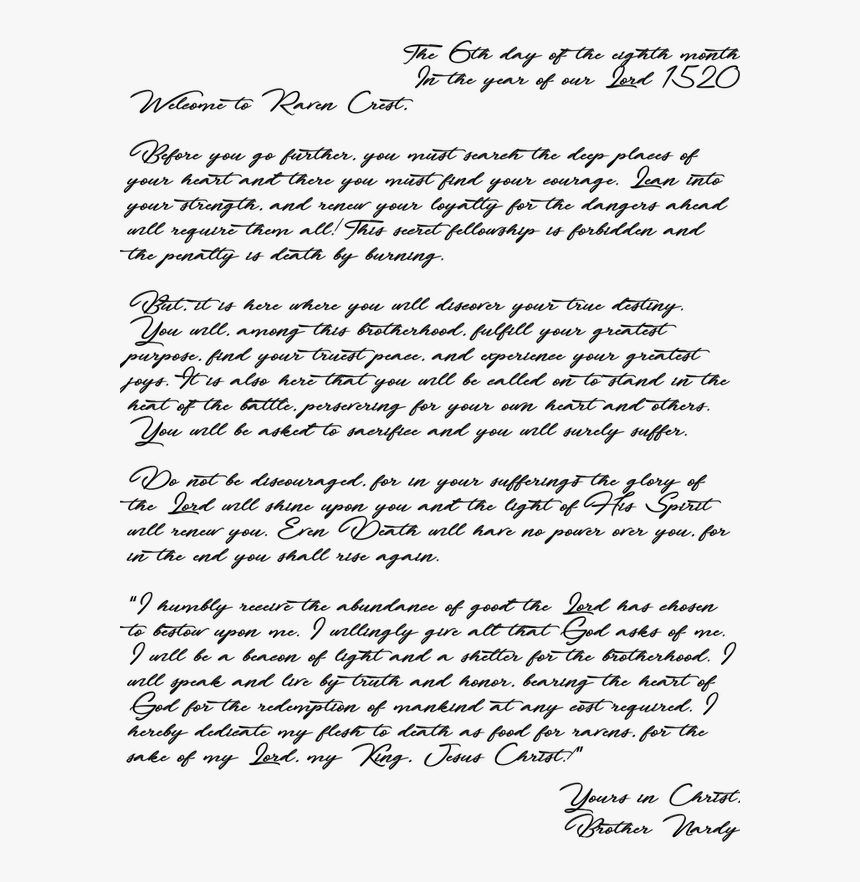 The 6th day of the eighth month
In the year of our Lord 1520
Welcome to Raven Crest.
Before you go further, you must search the deep places of
your heart and there you must find your courage. Lean into
your strength, and renew your loyalty for the dangers ahead
will require them all! This secret fellowship is forbidden and
the penalty is death by burning.
But, it is here where you will discover your true destiny.
You will, among this brotherhood, fulfill your greatest
purpose, find your truest peace, and experience your greatest
joys. It is also here that you will be called on to stand in the
heat of the battle, persevering for your own heart and others.
You will be asked to sacrifice and you will surely suffer.
Do not be discouraged, for in your sufferings the glory of
the Lord will shine upon you and the light of His Spirit
will renew you. Even Death will have no power over you, for
in the end you shall rise again.
"I humbly receive the abundance of good the Lord has chosen
to bestow upon me. I willingly give all that God asks of me.
I will be a beacon of light and a shelter for the brotherhood. I
will speak and live by truth and honor, bearing the heart of
God for the redemption of mankind at any cost required. I
hereby dedicate my flesh to death as food for ravens, for the
sake of my Lord, my King, Jesus Christ!"
Yours in Christ,
Brother Nardy